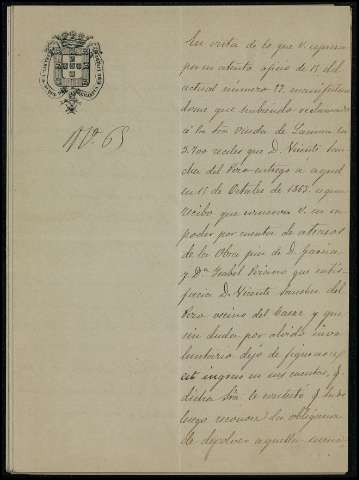 Nº 65
En vista de lo que V. expresa
por su atento oficio de 15 del
actual numero 22, manifestan
dome que habiendo reclamado
á la Sra Viuda de
2.700 reales que D. Vicente San
chez del Pozo entregó a aquel
en 15 de Octubre de 1863, segun
recibo que conserva V. en su
poder por cuenta de atrasos
de la Obra pia de D. Garcia
y Da Isabel que satis
facia D. Vicente Sanchez del
Pozo vecino del Casar y que
sin duda por olvido invo
luntario dejó de figurar
este ingreso en sus cuentas, q
dicha Sra le contestó q desde
luego reconoce la obligacion
de devolver aquella suma